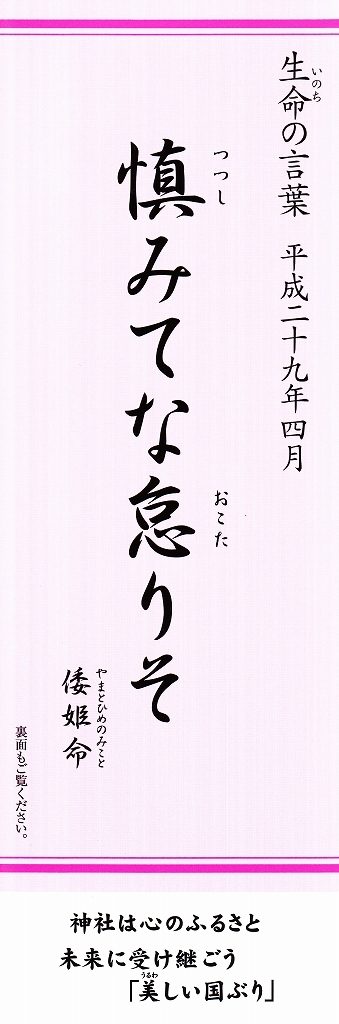 生命の言葉　平成二十九年四月
いのち
慎みてな怠りそ
つつし
おこた
倭姫命
やまとひめのみこと
裏面もご覧ください。
神社は心のふるさと
未来に受け継ごう
「美しい国ぶり」
うるわ